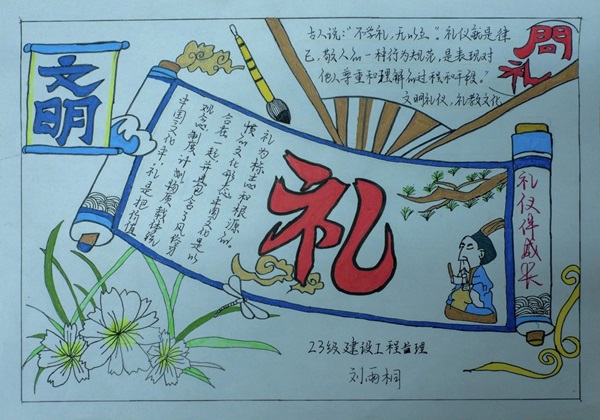 文明
古人说："不学礼，无以立。"礼仪就是律
己、敬人的一种行为规范，是表现对
他人尊重和理解的过程和手段。"
文明礼仪，礼教文化
問礼
中国文化中，礼是把价值
观念、制度计划物质载体统
合在一起，并且包含了风俗习
惯的文化形态中国文化是以
礼为标志和根源的。
礼
礼仪伴成长
23级建设工程监理
刘雨桐